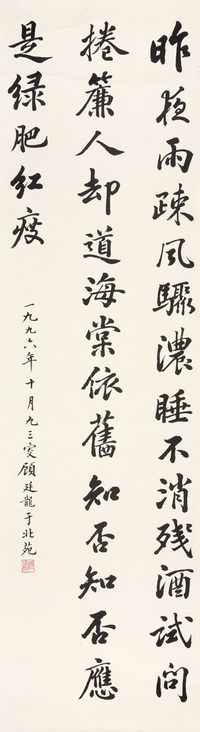 昨夜雨疎風驟濃睡不消殘酒試問
捲簾人却道海棠依舊知否知否應
是綠肥紅瘦
一九九六年十月九三叟顧廷龍于北苑